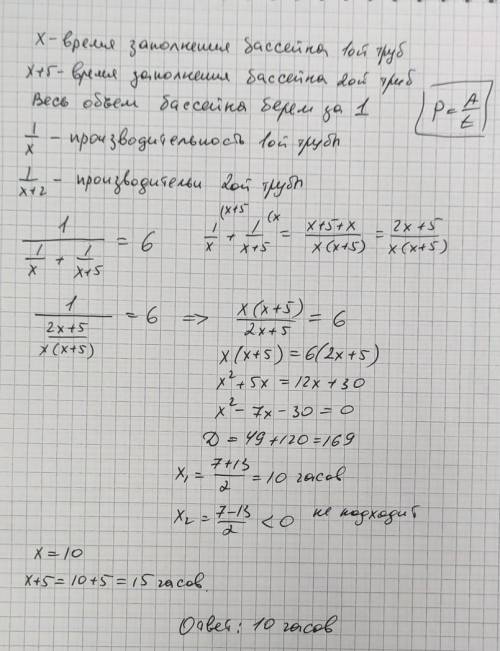 x - время заполнения бассейна 1ой труб
x+5 - время заполнения бассейна 2ой труб
Весь объем бассейна берем за 1
P = A/t
1/x - производительность 1ой трубы
1/(x+2) - производительн 2ой трубы
1/(1/x + 1/(x+5)) = 6
1/x (x+5 + 1/(x+5) (x = (x+5+x)/(x(x+5)) = (2x+5)/(x(x+5))
1/((2x+5)/(x(x+5))) = 6 => x(x+5)/(2x+5) = 6
x(x+5) = 6(2x+5)
x²+5x = 12x+30
x²-7x-30=0
D = 49+120=169
x₁ = (7+13)/2 = 10 часов
x₂ = (7-13)/2 < 0 не подходит
x=10
x+5=10+5=15 часов.
Ответ: 10 часов